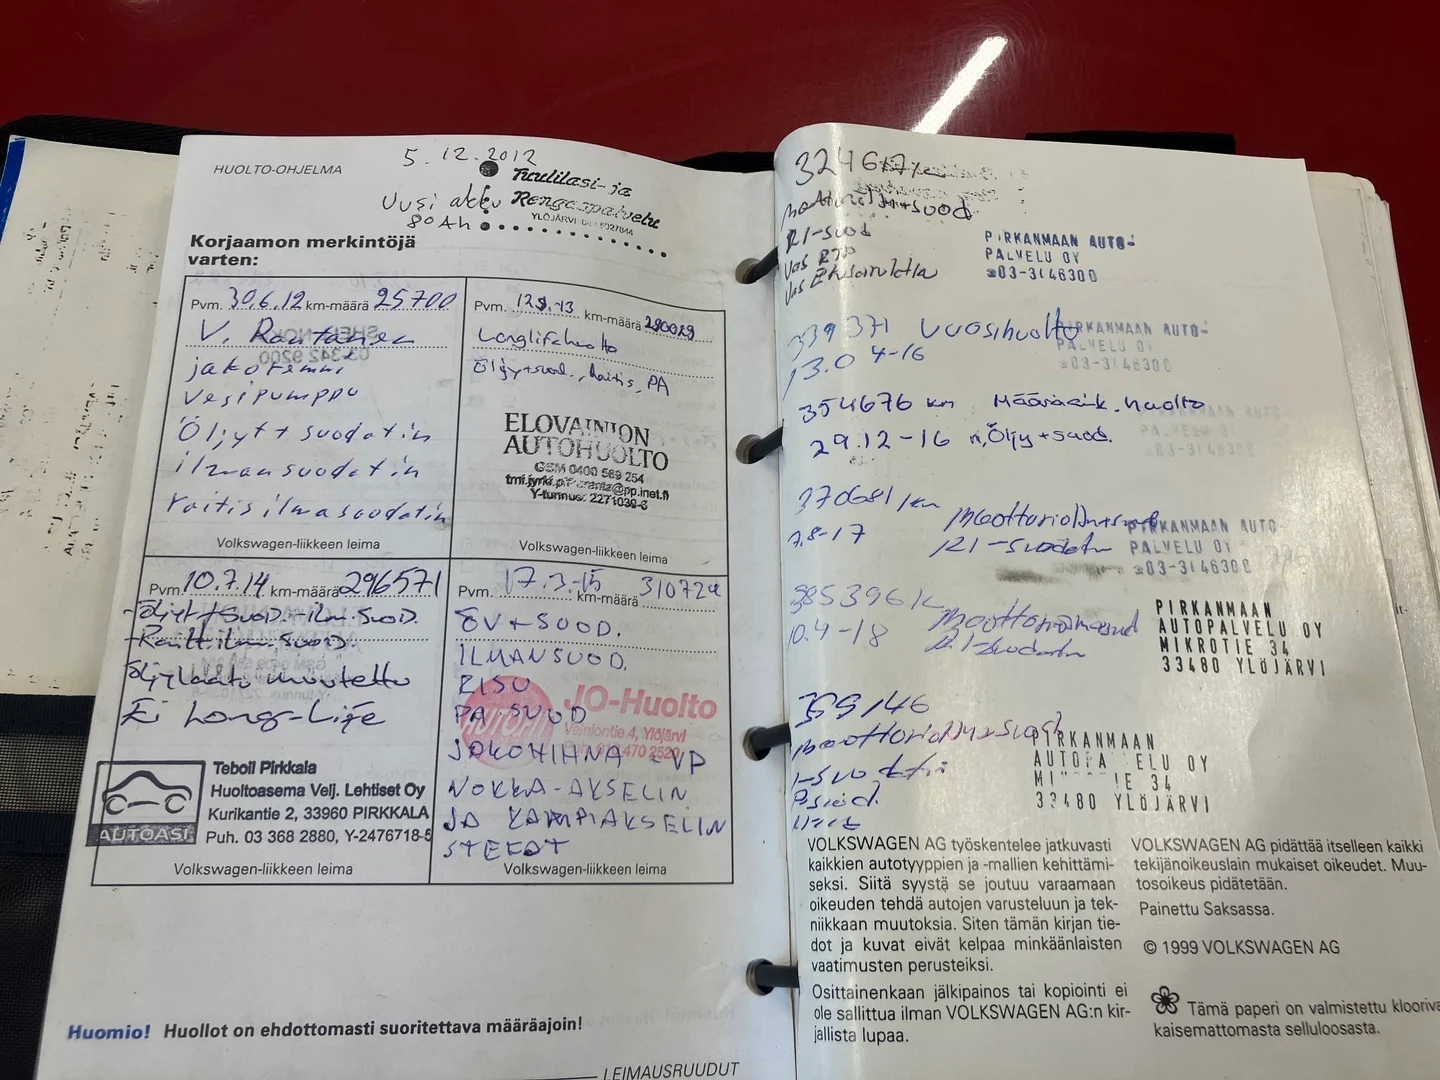 HUOLTO-OHJELMA
5.12.2012
Uusi akku
80Ah
Tuulilasi- ja
Rengaspalvelu
YLÖJÄRVI
Korjaamon merkintöjä
varten:
Pvm. 30.6.12 km-määrä 25700
V.
jakoremmi
vesipumppu
Öljyt + suodatin
ilmansuodatin
raitisilmasuodatin
Volkswagen-liikkeen leima
Pvm. km-määrä 280029
Longlifehuolto
Öljy+suod., raitis, PA
ELOVAINION
AUTOHUOLTO
GSM 0400 589 254
Y-tunnus: 2271039-6
Volkswagen-liikkeen leima
Pvm. 10.7.14 km-määrä 296571
-Öljyt+suoD.-ilm.SuoD.
-Raitt.ilm.suoD.
Öljylaatu muutettu
Ei Long-Life
AUTOASI
Teboil Pirkkala
Huoltoasema Velj. Lehtiset Oy
Kurikantie 2, 33960 PIRKKALA
Puh. 03 368 2880, Y-2476718-5
Volkswagen-liikkeen leima
Pvm. 17.3-15 km-määrä 310724
ÖV + SUOD.
ILMANSUOD.
RISU
PA SUOD
JAKOHIHNA + VP
NOKKA-AKSELIN
JA KAMPIAKSELIN
STEFAT
JO-Huolto
Vainiontie 4, Ylöjärvi
Volkswagen-liikkeen leima
Huomio! Huollot on ehdottomasti suoritettava määräajoin!
LEIMAUSRUUDUT
RI-suod
PIRKANMAAN AUTO-
PALVELU OY
☎03-3146300
339371 vuosihuolto
13.04-16
PIRKANMAAN AUTO-
PALVELU OY
☎03-3146300
354676 km Määräaik.huolto
29.12-16 m,Öljy+suod.
PIRKANMAAN AUTO-
PALVELU OY
☎03-3146300
370681 km
7.8-17
RI-suodatin
PIRKANMAAN AUTO
PALVELU OY
☎03-3146300
385396
10.4-18
RI-suodatin
PIRKANMAAN
AUTOPALVELU OY
MIKROTIE 34
33480 YLÖJÄRVI
PIRKANMAAN
AUTOPALVELU OY
MIKROTIE 34
33480 YLÖJÄRVI
VOLKSWAGEN AG työskentelee jatkuvasti
kaikkien autotyyppien ja -mallien kehittämi-
seksi. Siitä syystä se joutuu varaamaan
oikeuden tehdä autojen varusteluun ja tek-
niikkaan muutoksia. Siten tämän kirjan tie-
dot ja kuvat eivät kelpaa minkäänlaisten
vaatimusten perusteiksi.
Osittainenkaan jälkipainos tai kopiointi ei
ole sallittua ilman VOLKSWAGEN AG:n kir-
jallista lupaa.
VOLKSWAGEN AG pidättää itselleen kaikki
tekijänoikeuslain mukaiset oikeudet. Muu-
tosoikeus pidätetään.
Painettu Saksassa.
© 1999 VOLKSWAGEN AG
Tämä paperi on valmistettu klooriva
kaisemattomasta selluloosasta.